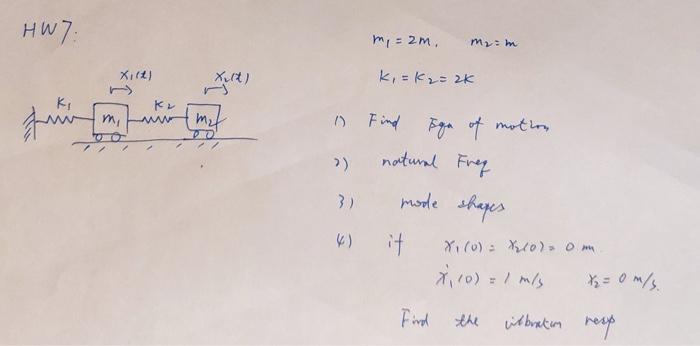 HW7:
m₁ = 2m, m₂ = m
k₁ = k₂ = 2k
x₁(t) x₂(t)
k₁ k₂
m₁ m₂
1) Find Eqn of motion
2) natural Freq
3) mode shapes
4) if x₁(0) = x₂(0) = 0 m.
ẋ₁(0) = 1 m/s ẋ₂ = 0 m/s.
Find the vibration resp